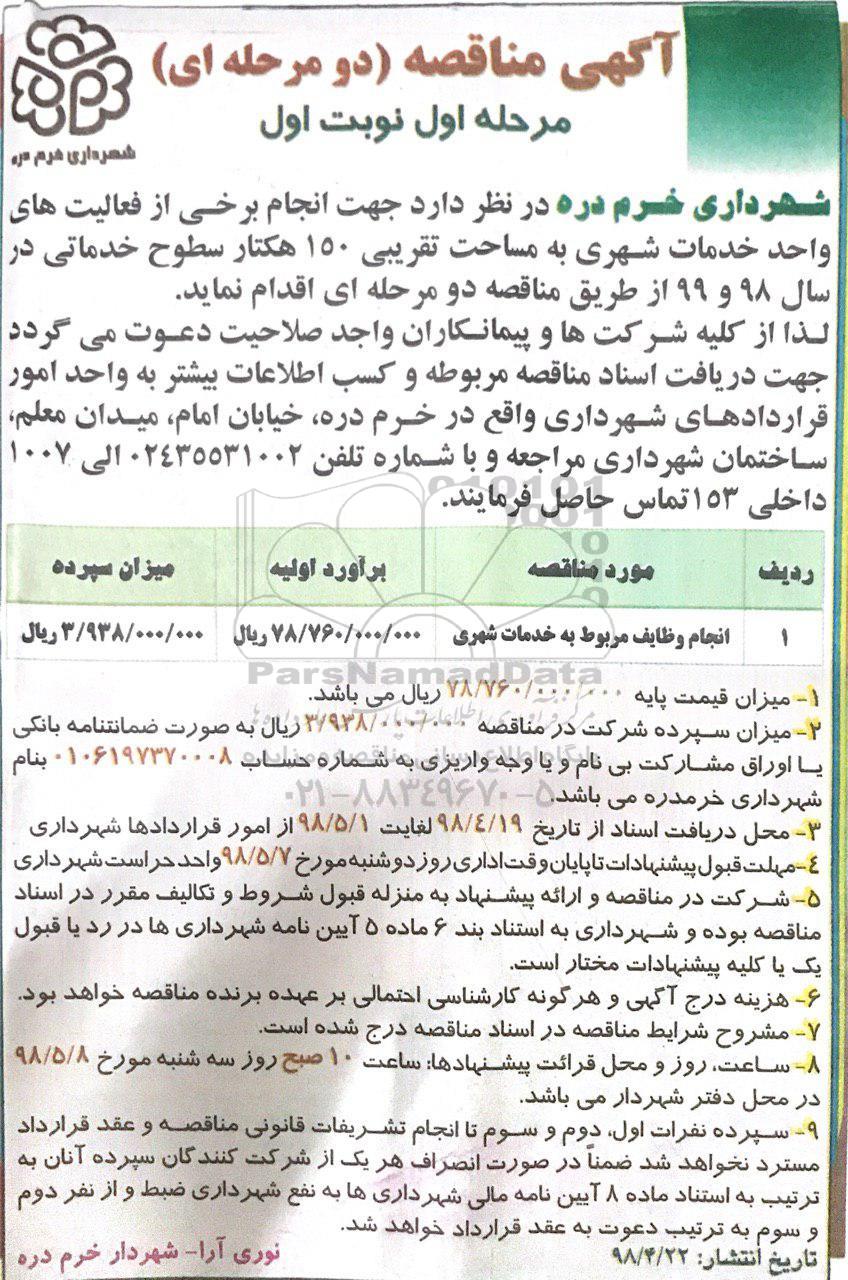 آگهی مناقصه (دو مرحله ای)
مرحله اول نوبت اول
شهرداری خرم دره
شهرداری خرم دره در نظر دارد جهت انجام برخی از فعالیت های
واحد خدمات شهری به مساحت تقریبی ۱۵۰ هکتار سطوح خدماتی در
سال ۹۸ و ۹۹ از طریق مناقصه دو مرحله ای اقدام نماید.
لذا از کلیه شرکت ها و پیمانکاران واجد صلاحیت دعوت می گردد
جهت دریافت اسناد مناقصه مربوطه و کسب اطلاعات بیشتر به واحد امور
قراردادهای شهرداری واقع در خرم دره، خیابان امام، میدان معلم،
ساختمان شهرداری مراجعه و با شماره تلفن ۰۲۴۳۵۵۳۱۰۰۲ الی ۱۰۰۷
داخلی ۱۵۳ تماس حاصل فرمایند.
ردیف مورد مناقصه برآورد اولیه میزان سپرده
۱ انجام وظایف مربوط به خدمات شهری ۷۸/۷۶۰/۰۰۰/۰۰۰ ریال ۳/۹۳۸/۰۰۰/۰۰۰ ریال
ParsNamadData
۱- میزان قیمت پایه ۷۸/۷۶۰/۰۰۰/۰۰۰ ریال می باشد.
۲- میزان سپرده شرکت در مناقصه ۳/۹۳۸/۰۰۰/۰۰۰ ریال به صورت ضمانتنامه بانکی
یا اوراق مشارکت بی نام و یا وجه واریزی به شماره حساب ۰۱۰۶۱۹۷۳۷۰۰۰۸ بنام
شهرداری خرمدره می باشد.
۰۲۱-۸۸۳۴۹۶۷۰-۵
۳- محل دریافت اسناد از تاریخ ۹۸/۴/۱۹ لغایت ۹۸/۵/۱ از امور قراردادها شهرداری
۴- مهلت قبول پیشنهادات تا پایان وقت اداری روز دوشنبه مورخ ۹۸/۵/۷ واحد حراست شهرداری
۵- شرکت در مناقصه و ارائه پیشنهاد به منزله قبول شروط و تکالیف مقرر در اسناد
مناقصه بوده و شهرداری به استناد بند ۶ ماده ۵ آیین نامه شهرداری ها در رد یا قبول
یک یا کلیه پیشنهادات مختار است.
۶- هزینه درج آگهی و هرگونه کارشناسی احتمالی بر عهده برنده مناقصه خواهد بود.
۷- مشروح شرایط مناقصه در اسناد مناقصه درج شده است.
۸- ساعت، روز و محل قرائت پیشنهادها: ساعت ۱۰ صبح روز سه شنبه مورخ ۹۸/۵/۸
در محل دفتر شهردار می باشد.
۹- سپرده نفرات اول، دوم و سوم تا انجام تشریفات قانونی مناقصه و عقد قرارداد
مسترد نخواهد شد ضمناً در صورت انصراف هر یک از شرکت کنندگان سپرده آنان به
ترتیب به استناد ماده ۸ آیین نامه مالی شهرداری ها به نفع شهرداری ضبط و از نفر دوم
و سوم به ترتیب دعوت به عقد قرارداد خواهد شد.
تاریخ انتشار: ۹۸/۴/۲۲
نوری آرا- شهردار خرم دره